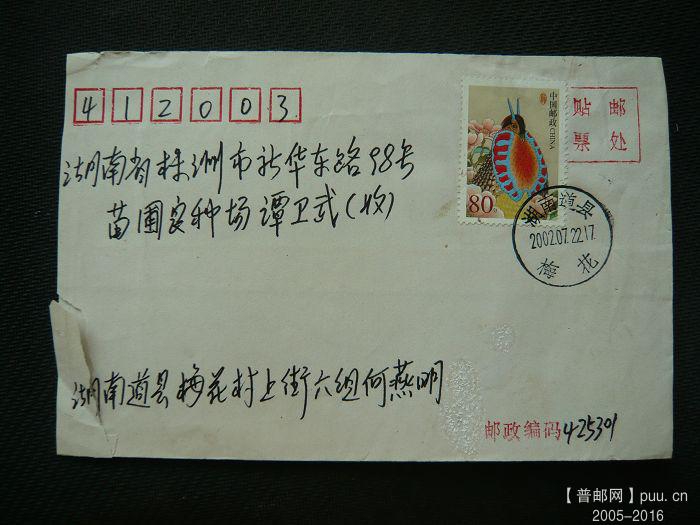 412003
中国邮政 CHINA
80
贴 邮
票 处
湖南省株洲市新华东路98号
苗圃良种场谭卫武(收)
湖南道县
2002.07.22.17
梅花
湖南道县梅花村上街六组何燕明
邮政编码425301
【普邮网】puu.cn
2005-2016